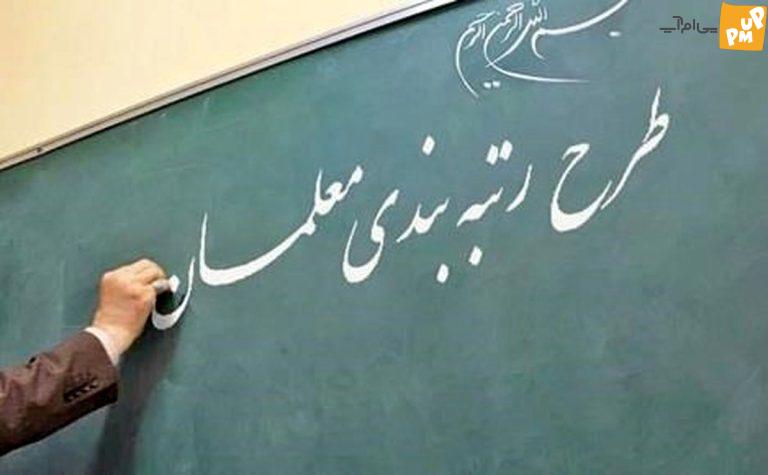 بسم الله الرحمن الرحیم
پی‌ام‌آپ
UP
PM
طرح رتبه بندی معلمان